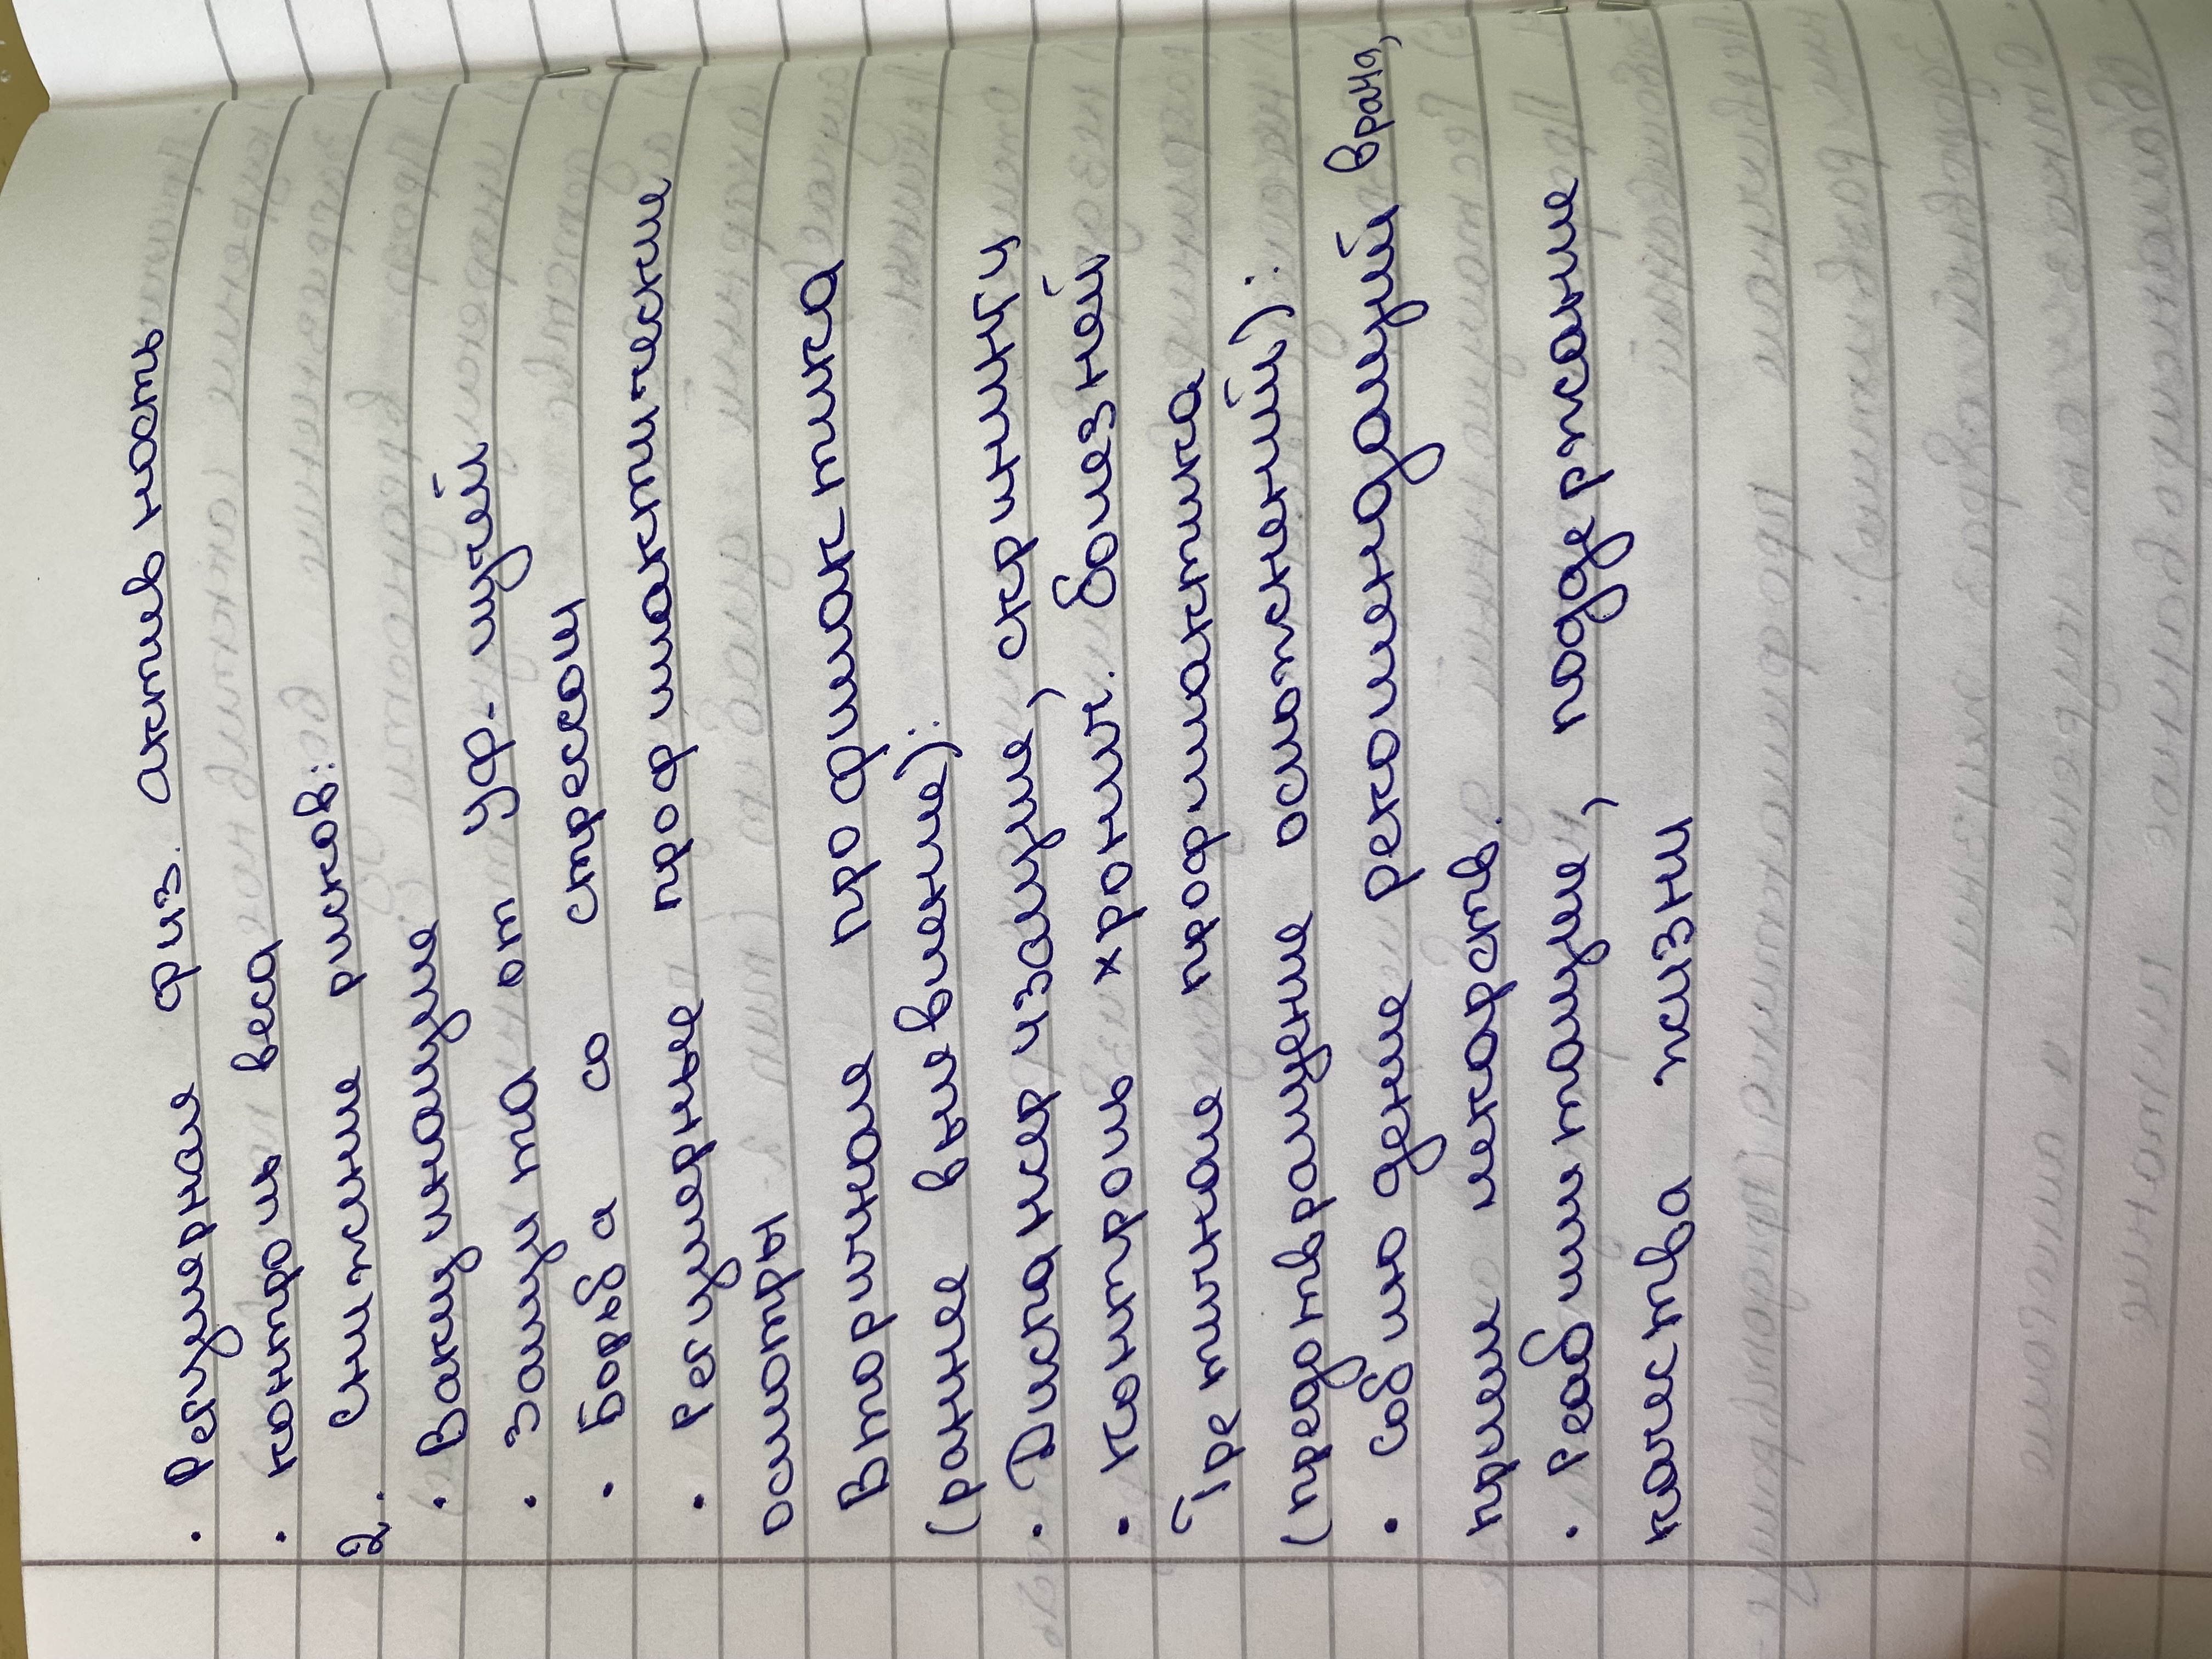 • Регулярная физ. активность
• контроль веса
2. Снижение рисков:
• Вакцинация
• защита от УФ-лучей
• Борьба со стрессом
• Регулярные профилактические
осмотры
Вторичная профилактика
(раннее выявление):
• Диспансеризация, скрининги
• контроль хронич. болезней
Третичная профилактика
(предотвращение осложнений):
• соблюдение рекомендаций врача,
прием лекарств.
• Реабилитация, поддержание
качества жизни